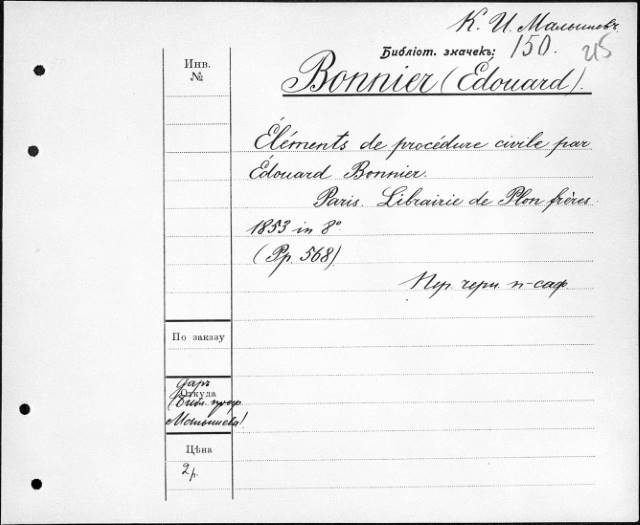 К. И. Малышевъ
Библіот. значекъ: 150.
215
Инв.
№
Bonnier (Édouard).
Éléments de procédure civile par
Édouard Bonnier.
Paris. Librairie de Plon frères.
1853 in 8°
(Pp. 568)
Пер. черн. п-саф.
По заказу
Откуда
Даръ
(Библ. проф.
Малышева)
Цѣна
2 р.